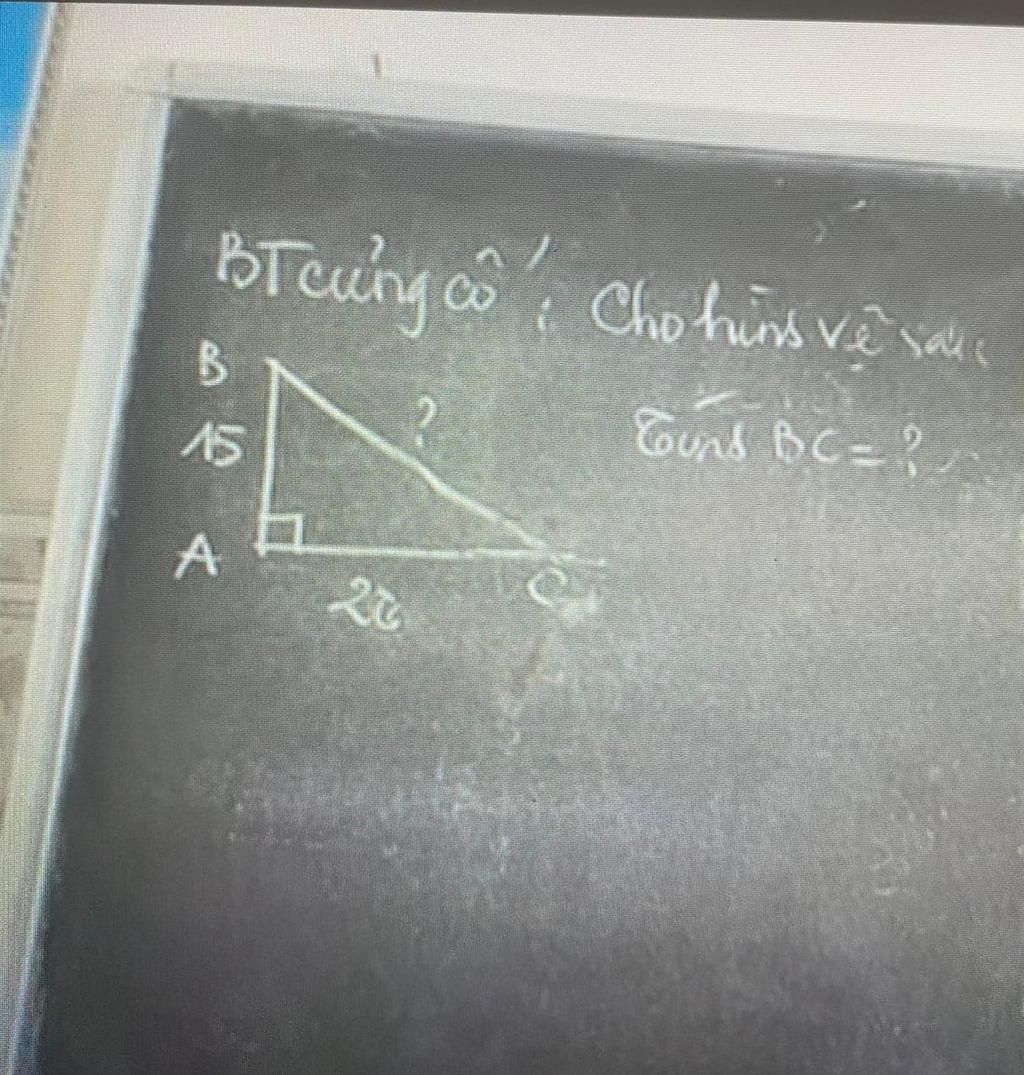 BT củng cố: Cho hình vẽ sau
B ?
Tính BC = ?
15
A
C